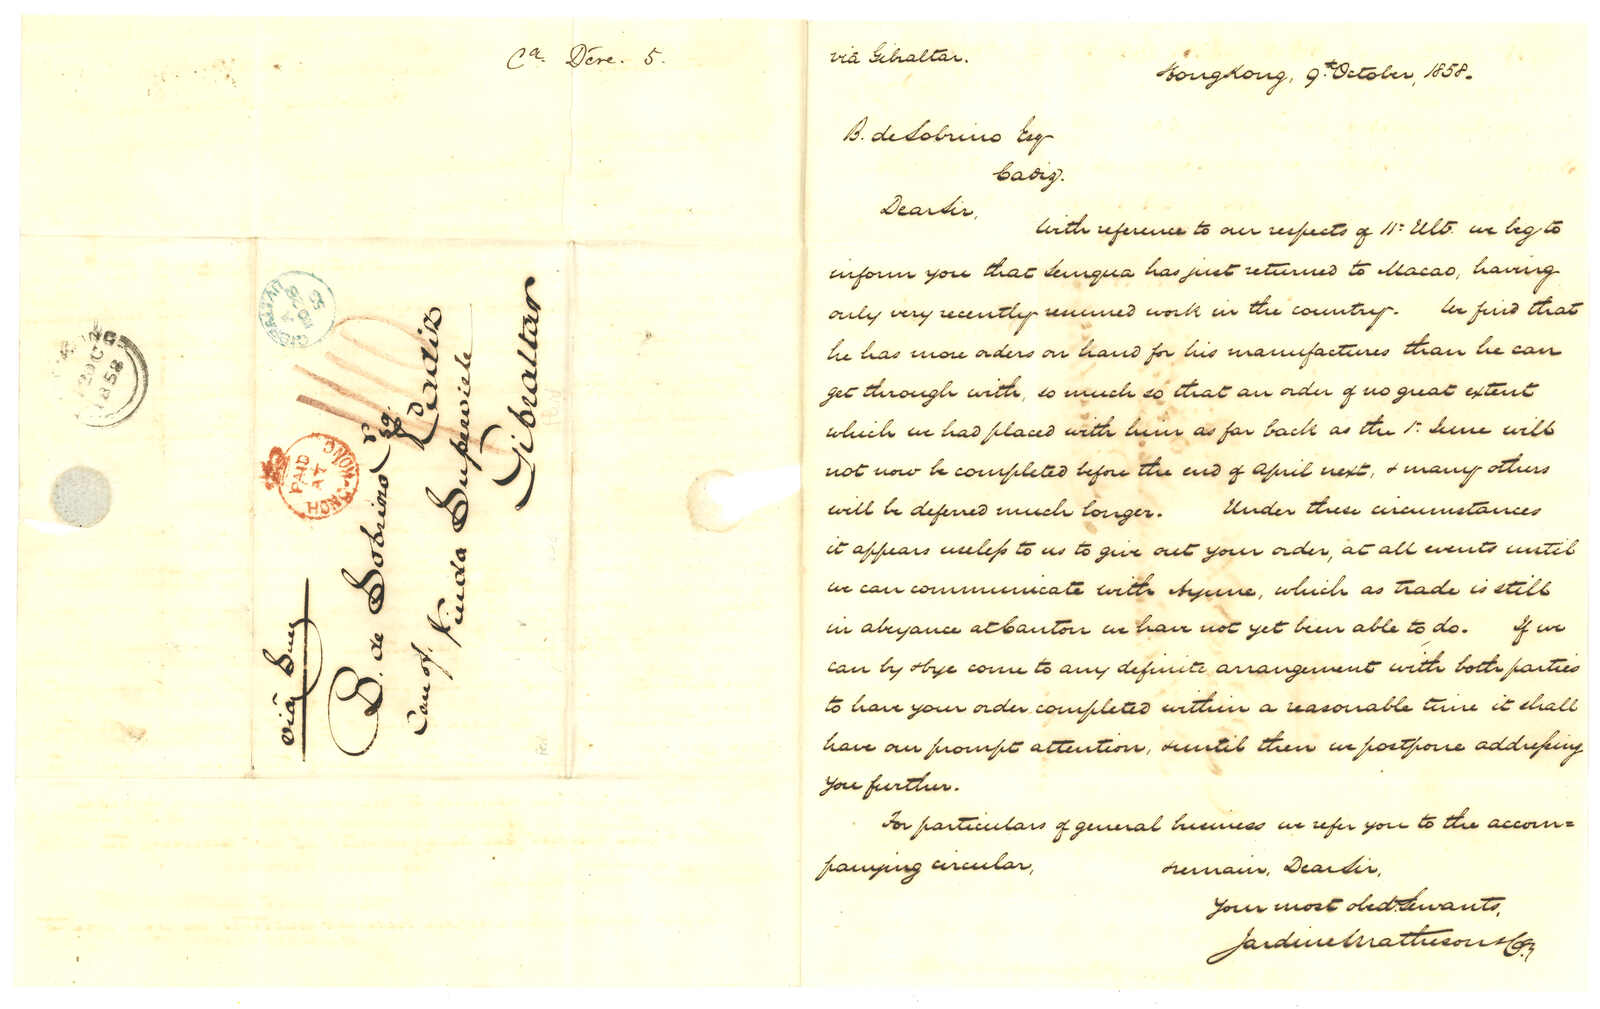 Ca. Dcre. 5.
HONG KONG
1858
GIBRALTAR
PAID
AT
HONG-KONG
viâ Suez
B. de Sobrino Esqr.
Cadiz
Care of Viuda Superviele
Gibraltar
viâ Gibraltar.
HongKong, 9th October, 1858.
B. de Sobrino Esqr
Cadiz.
Dear Sir,
With reference to our respects of 11th Ulto. we beg to
inform you that Sungua has just returned to Macao, having
only very recently resumed work in the country. We find that
he has more orders on hand for his manufactures than he can
get through with, so much so that an order of no great extent
which we had placed with him as far back as the 1st June will
not now be completed before the end of April next, & many others
will be deferred much longer. Under these circumstances
it appears useless to us to give out your order, at all events until
we can communicate with Ayune, which as trade is still
in abeyance at Canton we have not yet been able to do. If we
can by & bye come to any definite arrangement with both parties
to have your order completed within a reasonable time it shall
have our prompt attention, & until then we postpone addressing
you further.
For particulars of general business we refer you to the accom=
panying circular, & remain, Dear Sir,
Your most obedt. Servants,
Jardine Matheson & Co.